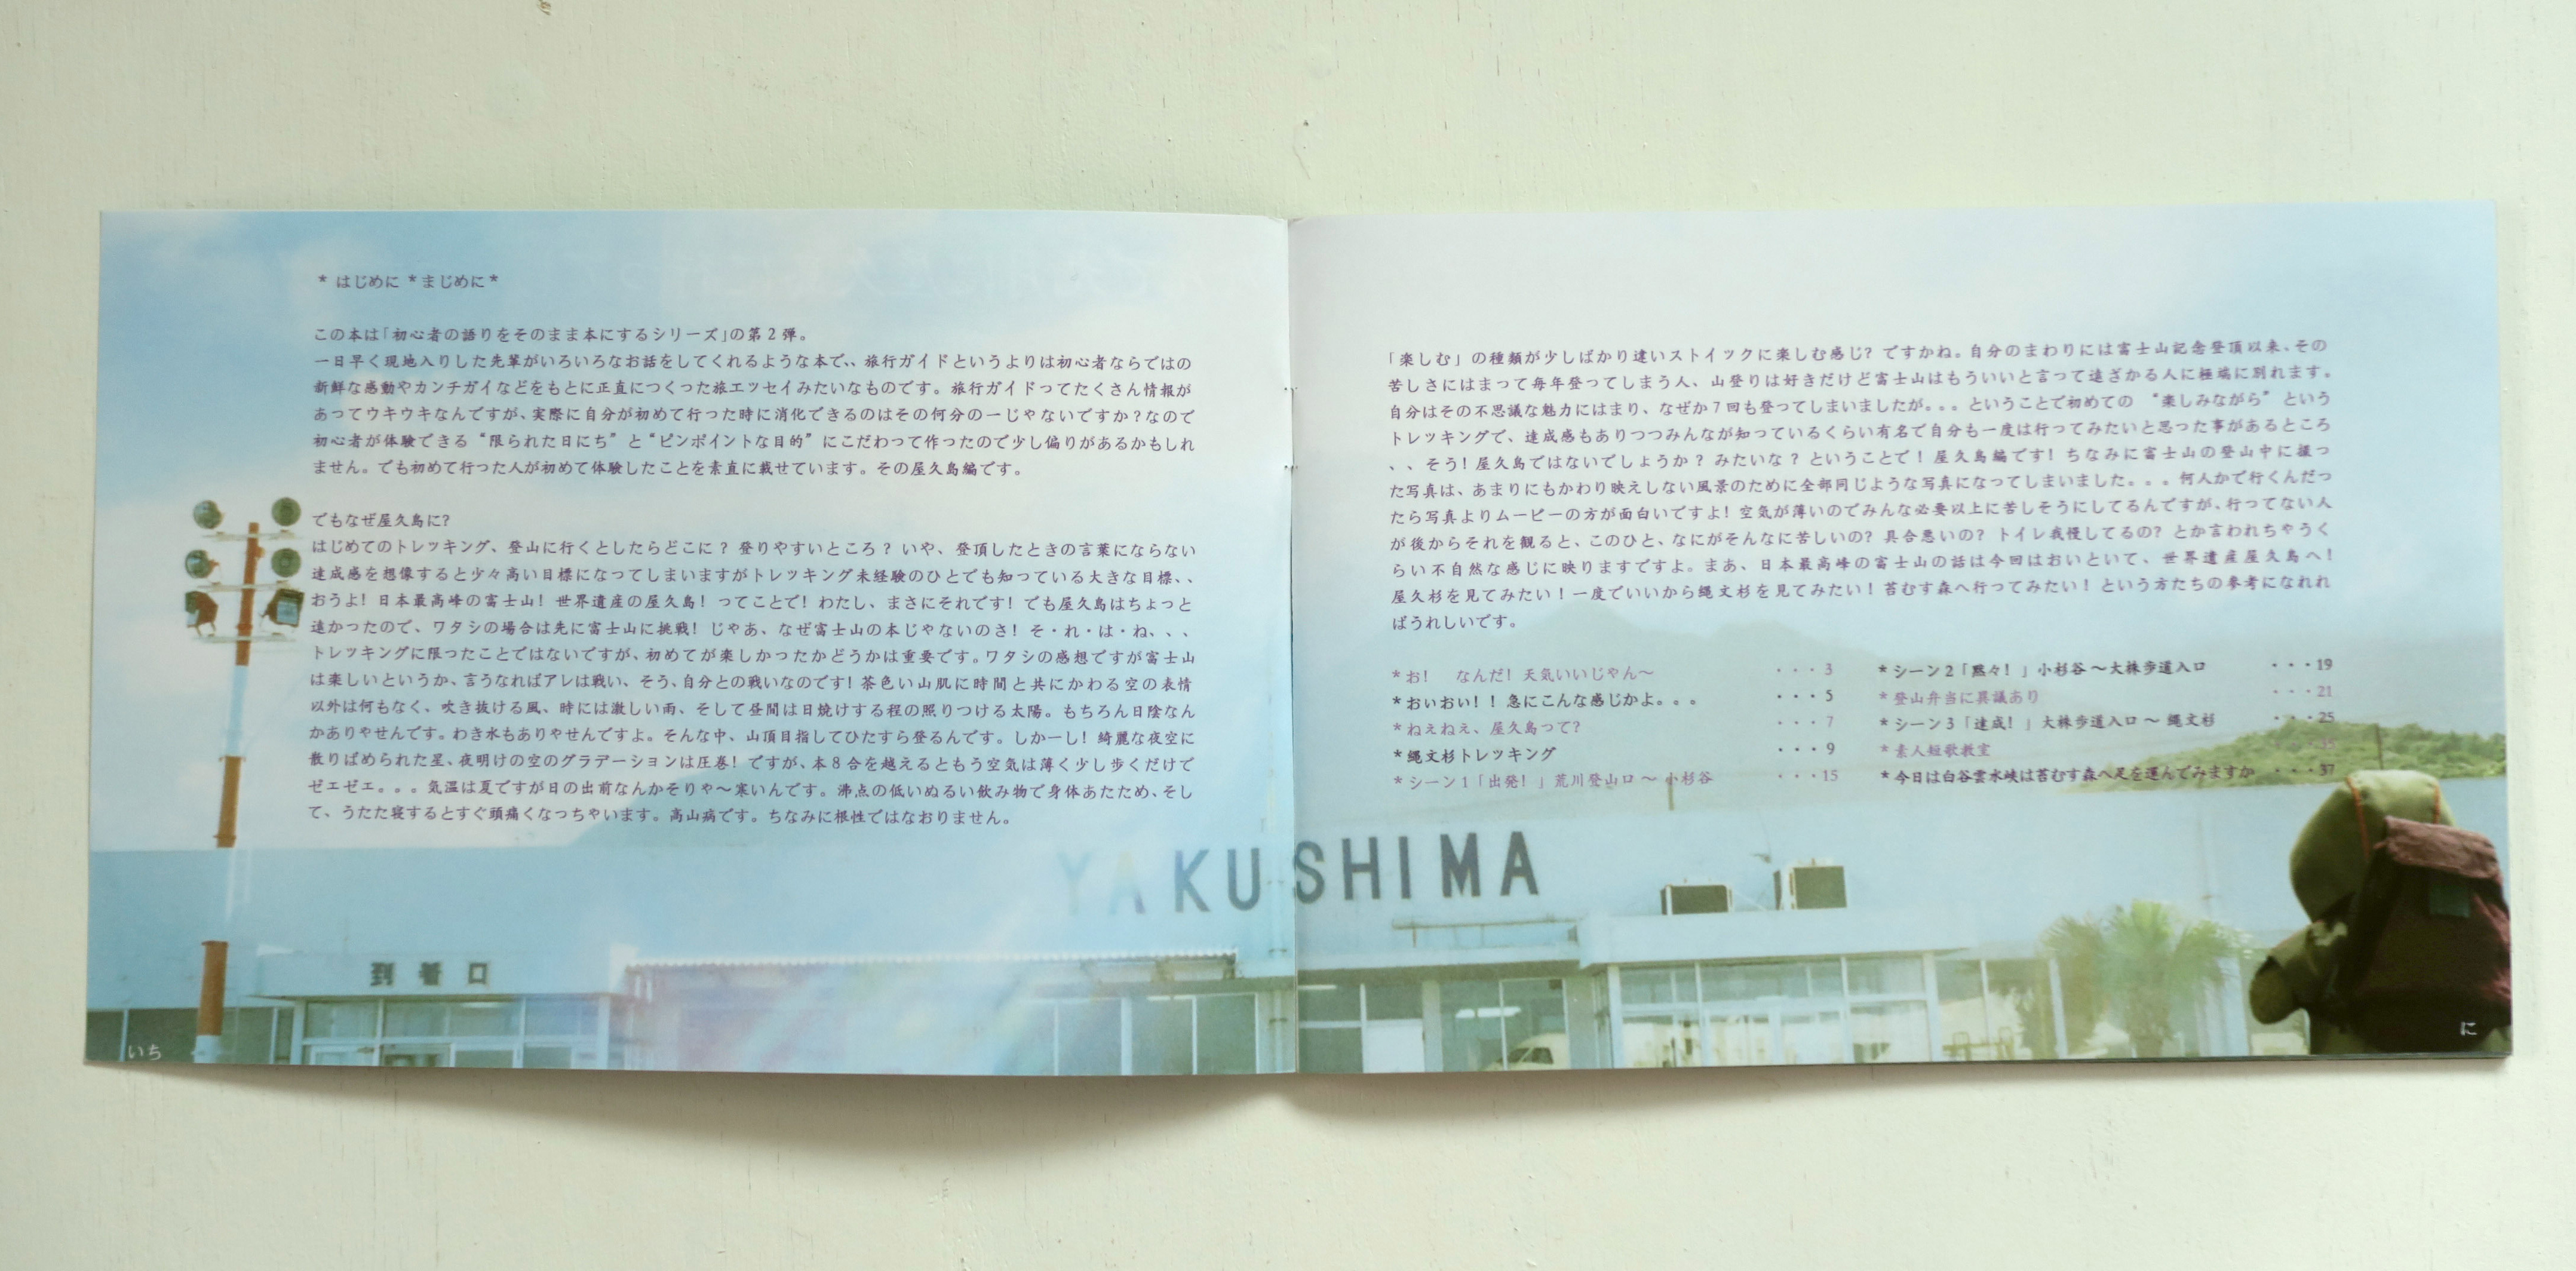 * はじめに *まじめに*
この本は「初心者の語りをそのまま本にするシリーズ」の第2弾。
一日早く現地入りした先輩がいろいろなお話をしてくれるような本で、、旅行ガイドというよりは初心者ならではの
新鮮な感動やカンチガイなどをもとに正直につくった旅エッセイみたいなものです。旅行ガイドってたくさん情報が
あってウキウキなんですが、実際に自分が初めて行った時に消化できるのはその何分の一じゃないですか？なので
初心者が体験できる“限られた日にち”と“ピンポイントな目的”にこだわって作ったので少し偏りがあるかもしれ
ません。でも初めて行った人が初めて体験したことを素直に載せています。その屋久島編です。
でもなぜ屋久島に?
はじめてのトレッキング、登山に行くとしたらどこに？登りやすいところ？いや、登頂したときの言葉にならない
達成感を想像すると少々高い目標になってしまいますがトレッキング未経験のひとでも知っている大きな目標、、
おうよ！日本最高峰の富士山！世界遺産の屋久島！ってことで！わたし、まさにそれです！でも屋久島はちょっと
遠かったので、ワタシの場合は先に富士山に挑戦！じゃあ、なぜ富士山の本じゃないのさ！そ・れ・は・ね、、、
トレッキングに限ったことではないですが、初めてが楽しかったかどうかは重要です。ワタシの感想ですが富士山
は楽しいというか、言うなればアレは戦い、そう、自分との戦いなのです！茶色い山肌に時間と共にかわる空の表情
以外は何もなく、吹き抜ける風、時には激しい雨、そして昼間は日焼けする程の照りつける太陽。もちろん日陰なん
かありやせんです。わき水もありやせんですよ。そんな中、山頂目指してひたすら登るんです。しかーし！綺麗な夜空に
散りばめられた星、夜明けの空のグラデーションは圧巻！ですが、本8合を越えるともう空気は薄く少し歩くだけで
ゼエゼエ。。。気温は夏ですが日の出前なんかそりゃ〜寒いんです。沸点の低いぬるい飲み物で身体あたため、そし
て、うたた寝するとすぐ頭痛くなっちゃいます。高山病です。ちなみに根性ではなおりません。
到着口
いち
「楽しむ」の種類が少しばかり違いストイックに楽しむ感じ？ですかね。自分のまわりには富士山記念登頂以来、その
苦しさにはまって毎年登ってしまう人、山登りは好きだけど富士山はもういいと言って遠ざかる人に極端に別れます。
自分はその不思議な魅力にはまり、なぜか7回も登ってしまいましたが。。。ということで初めての “楽しみながら”という
トレッキングで、達成感もありつつみんなが知っているくらい有名で自分も一度は行ってみたいと思った事があるところ
、、そう！屋久島ではないでしょうか？みたいな？ということで！屋久島編です！ちなみに富士山の登山中に撮っ
た写真は、あまりにもかわり映えしない風景のために全部同じような写真になってしまいました。。。何人かで行くんだっ
たら写真よりムービーの方が面白いですよ！空気が薄いのでみんな必要以上に苦しそうにしてるんですが、行ってない人
が後からそれを観ると、このひと、なにがそんなに苦しいの？具合悪いの？トイレ我慢してるの？とか言われちゃうく
らい不自然な感じに映りますですよ。まあ、日本最高峰の富士山の話は今回はおいといて、世界遺産屋久島へ！
屋久杉を見てみたい！一度でいいから縄文杉を見てみたい！苔むす森へ行ってみたい！という方たちの参考になれれ
ばうれしいです。
*お！ なんだ！天気いいじゃん〜 ・・・3
*おいおい！！急にこんな感じかよ。。。 ・・・5
*ねえねえ、屋久島って? ・・・7
*縄文杉トレッキング ・・・9
*シーン1「出発！」荒川登山口〜小杉谷 ・・・15
*シーン2「黙々！」小杉谷〜大株歩道入口 ・・・19
*登山弁当に異議あり ・・・21
*シーン3「達成！」大株歩道入口〜縄文杉 ・・・25
*素人短歌教室
*今日は白谷雲水峡は苔むす森へ足を運んでみますか ・・・37
YAKUSHIMA
に